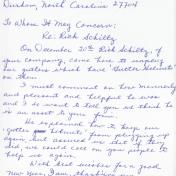 Durham, North Carolina 27704
To Whom It May Concern:
Re: Rick Schiltz
On December 30th Rick Schiltz, of
your company, came here to unplug
our gutters which have "Gutter Helmets"
on them.
I must comment on how mannerly
and pleasant and helpful he was
and I do want to tell you we think he
is an asset to your firm.
He explained how to keep our
gutter helmets from plugging up
again and assured me that if they
did, we could call on your people to
help us again.
With best wishes for a good
New Year, I am, thanking you